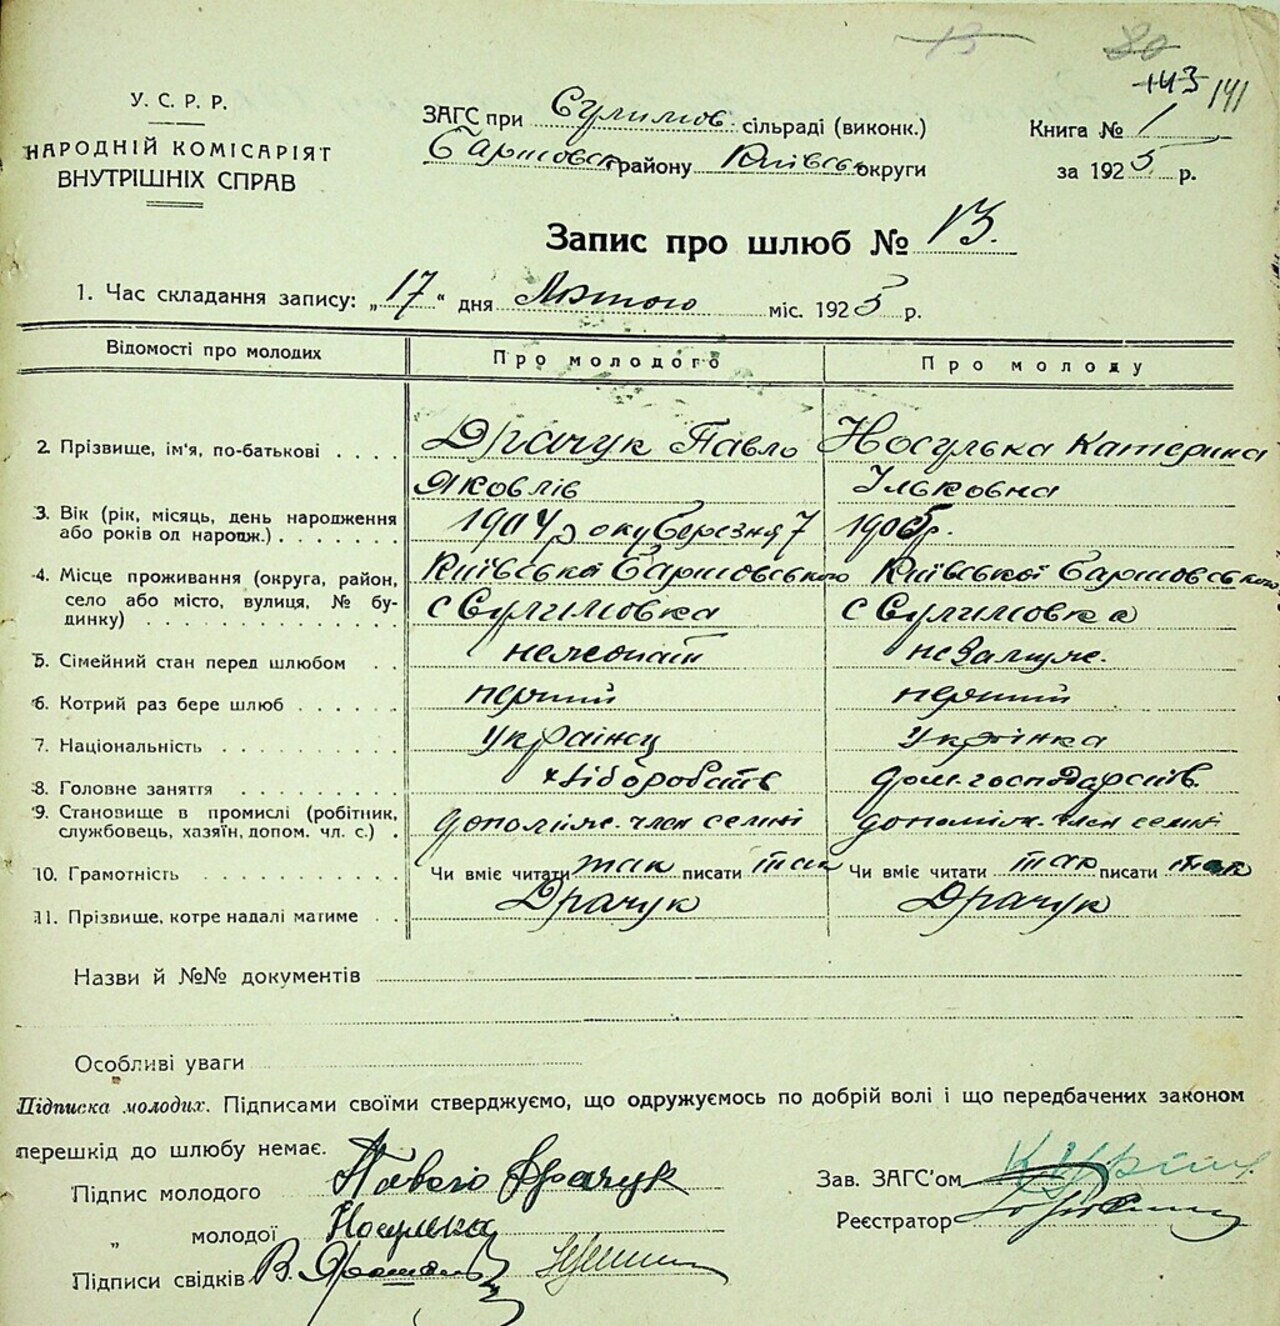 13 80
143 141
У. С. Р. Р.
НАРОДНІЙ КОМІСАРІЯТ
ВНУТРІШНІХ СПРАВ
ЗАГС при Сулимов. сільраді (виконк.)
Баришовськ району Київськ округи
Книга № 1
за 1925 р.
Запис про шлюб № 13.
1. Час складання запису: „17“ дня Лютого міс. 1925 р.
Відомості про молодих Про молодого Про молоду
2. Прізвище, ім'я, по-батькові . . . . Драчук Павло Носулька Катерина
Яковлів Ільковна
3. Вік (рік, місяць, день народження
або років од народж.) . . . . . . . 1904 року березня 7 1905 р.
4. Місце проживання (округа, район,
село або місто, вулиця, № бу-
динку) . . . . . . . . . . . . . .
Київської Баришовського Київської Баришовського
с Сулимовка с Сулимовка
5. Сімейний стан перед шлюбом . . нежонат незамуж.
6. Котрий раз бере шлюб . . . . . . перший перший
7. Національність . . . . . . . . . . українец укрїнка
8. Головне заняття . . . . . . . . . хліборобств дом. господарств.
9. Становище в промислі (робітник,
службовець, хазяїн, допом. чл. с.) . допоміж. член семні допоміж. член семні
10. Грамотність . . . . . . . . . . . Чи вміє читати так писати так Чи вміє читати так писати так
11. Прізвище, котре надалі матиме . . Драчук Драчук
Назви й №№ документів
Особливі уваги
Підписка молодих. Підписами своїми стверджуємо, що одружуємось по добрій волі і що передбачених законом
перешкід до шлюбу немає.
Підпис молодого Павло Драчук
„ молодої Носулька
Підписи свідків В.
Зав. ЗАГС'ом
Реєстратор